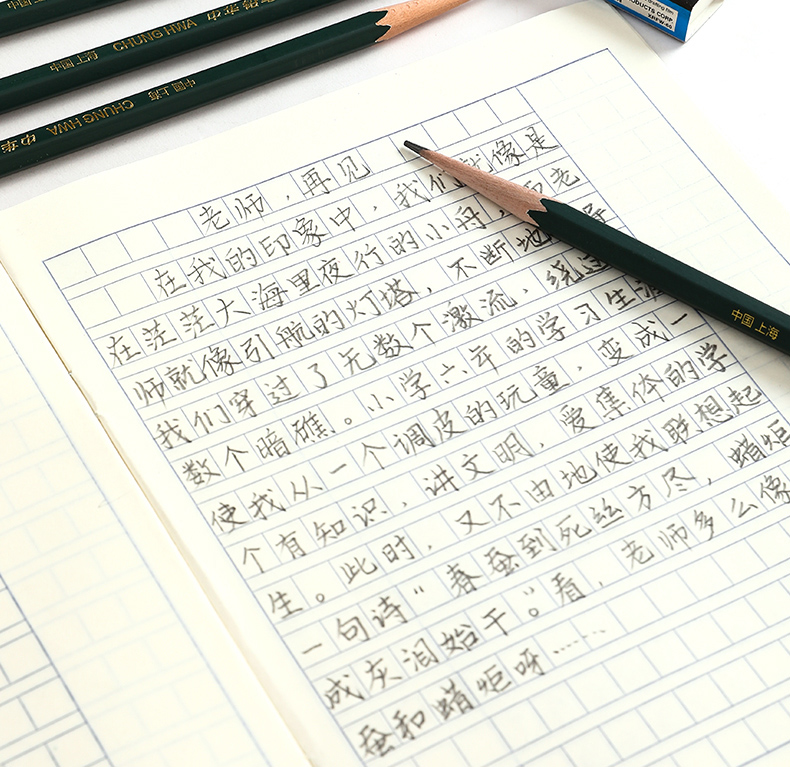 CHUNG HWA 中华
中国上海 CHUNG HWA 中华
中华 CHUNG HWA 中国上海
PRODUCTS CORP.
老师,再见
在我的印象中,我们就像是
在茫茫大海里夜行的小舟,而老
师就像引航的灯塔,不断地
我们穿过了无数个激流,绕过
数个暗礁。小学六年的学习生涯
使我从一个调皮的玩童,变成一
个有知识,讲文明,爱集体的学
生。此时,又不由地使我联想起
一句诗“春蚕到死丝方尽,蜡炬
成灰泪始干”。看,老师多么像
蚕和蜡炬呀……
中国上海